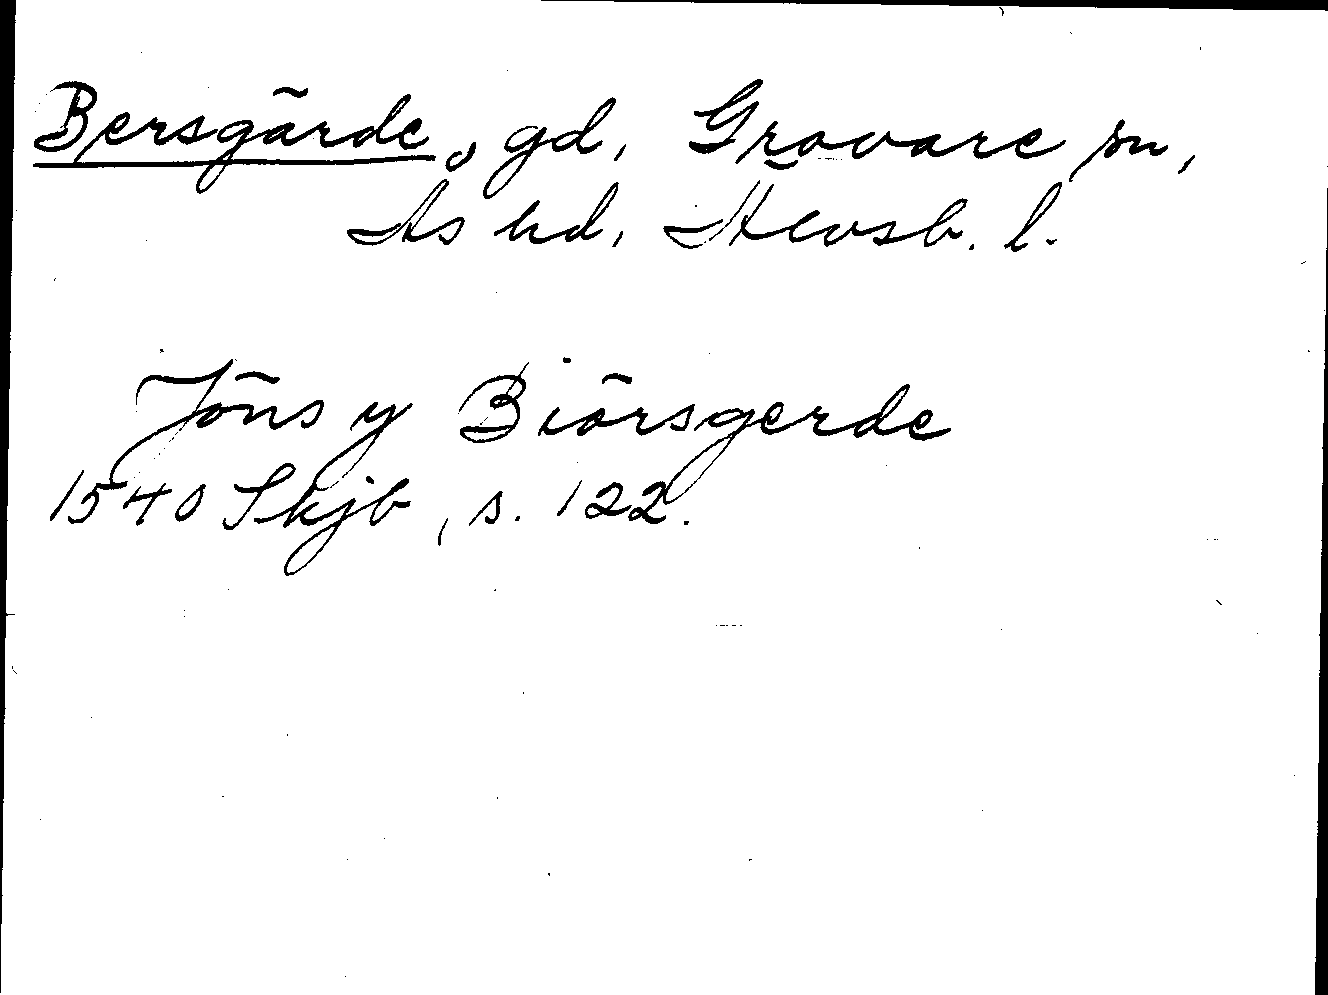 Bersgärde, gd, Grovare sn,
Ås hd, Älvsb. l.
Jöns y Biörsgerde
1540 Skjb, s. 122.